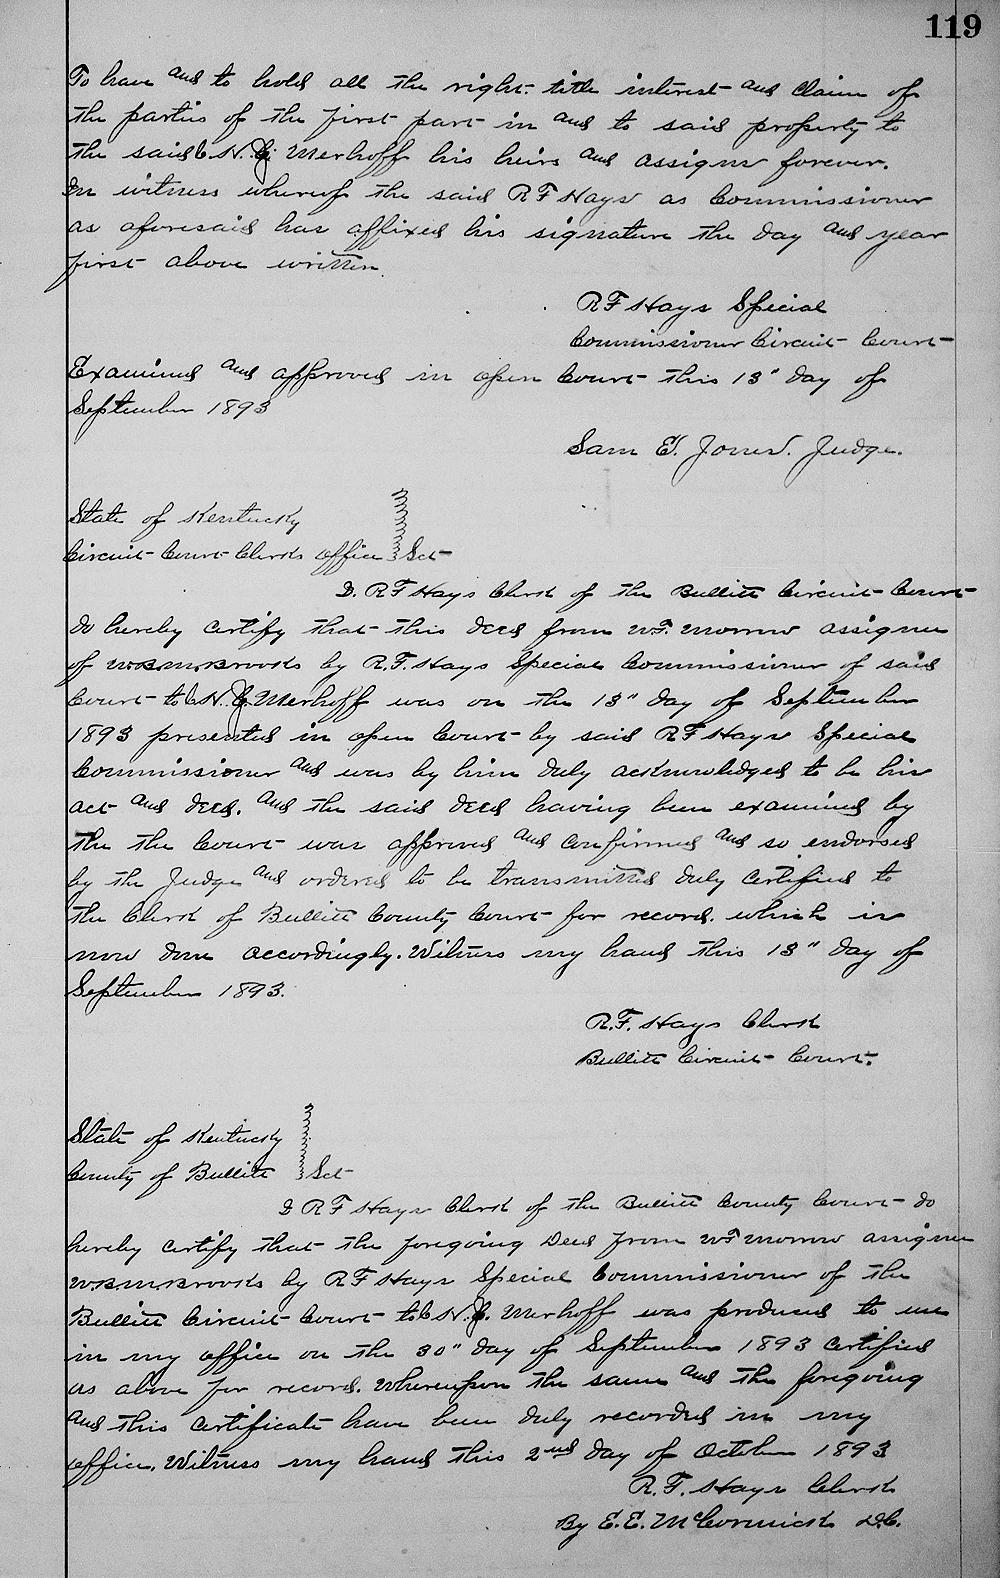 119
To have and to hold all the right title interest and claim of
the parties of the first part in and to said property to
the said C H. J. Merhoff his heirs and assigns forever.
In witness whereof the said R F Hays as Commissioner
as aforesaid has affixed his signature the day and year
first above written.
R F Hays Special
Commissioner Circuit Court
Examined and approved in open Court this 13" day of
September 1893
Sam E. Jones. Judge.
State of Kentucky
Circuit Court Clerks office Sct
I. R F Hays Clerk of the Bullitt Circuit Court
do hereby certify that this deed from W.F. Morrow assignee
of W.B.M. Brooks by R.F. Hays Special Commissioner of said
Court to C H. J. Merhoff was on the 13" day of September
1893 presented in open Court by said R F Hays Special
Commissioner and was by him duly acknowledged to be his
act and deed. And the said deed having been examined by
the the Court was approved and confirmed and so endorsed
by the Judge and ordered to be transmitted duly certified to
the Clerk of Bullitt County Court for record. which is
now done accordingly. Witness my hand this 13" day of
September 1893.
R.F. Hays Clerk
Bullitt Circuit Court.
State of Kentucky
County of Bullitt Sct
I R F Hays Clerk of the Bullitt County Court do
hereby certify that the foregoing Deed from W F Morrow assignee
W.B.M. Brooks by R F Hays Special Commissioner of the
Bullitt Circuit Court to C H. J. Merhoff was produced to me
in my office on the 30" day of September 1893 certified
as above for record. Whereupon the same and the foregoing
and this certificate have been duly recorded in my
office. Witness my hand this 2nd day of October 1893
R. F. Hays Clerk
By E. E. McCormick D.C.